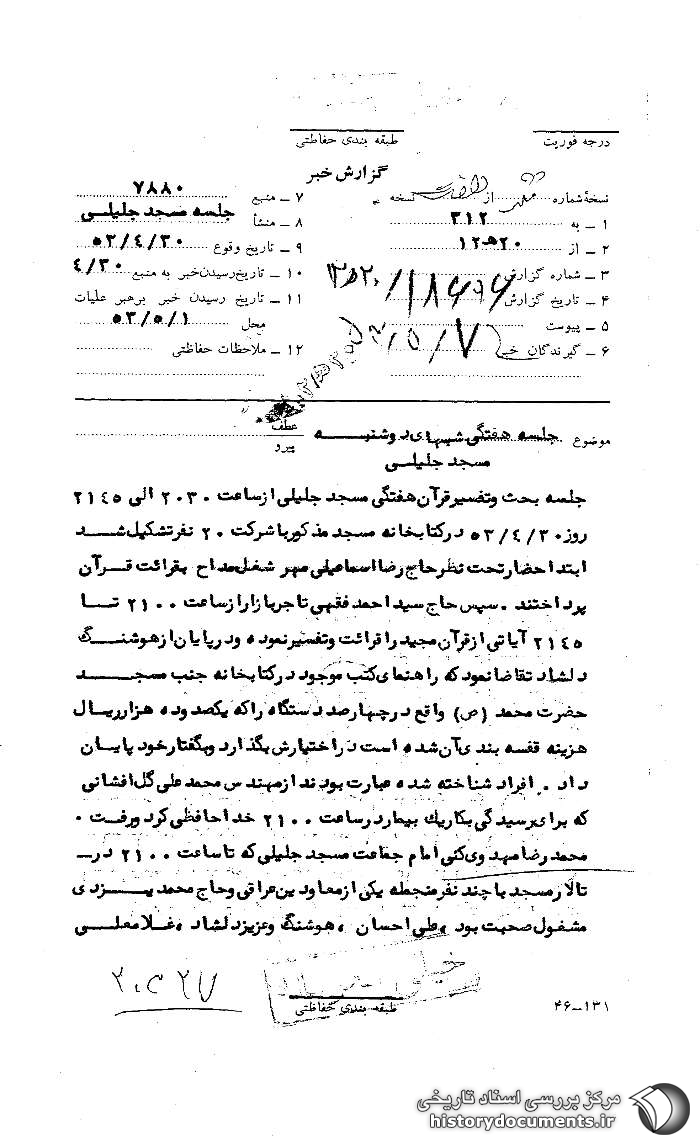 درجه فوریت
طبقه بندی حفاظتی
گزارش خبر
نسخهٔ شماره از نسخه
۱ ـ به ۳۱۲
۲ ـ از ۲۰ ﻫ ۱۲
۳ ـ شماره گزارش
۴ ـ تاریخ گزارش
۵ ـ پیوست
۶ ـ گیرندگان خبر
۷ ـ منبع ۷۸۸۰
۸ ـ منشأ جلسه مسجد جلیلی
۹ ـ تاریخ وقوع ۵۳/۴/۳۰
۱۰ ـ تاریخ رسیدن خبر به منبع ۴/۳۰
۱۱ ـ تاریخ رسیدن خبر برهبر عملیات
محل ۵۳/۵/۱
۱۲ ـ ملاحظات حفاظتی
موضوع جلسه هفتگی شبهای دوشنبه
مسجد جلیلی
عطف
پیرو
جلسه بحث و تفسیر قرآن هفتگی مسجد جلیلی از ساعت ۲۰۳۰ الی ۲۱۴۵
روز ۵۳/۴/۳۰ در کتابخانه مسجد مذکور با شرکت ۲۰ نفر تشکیل شد
ابتدا حضار تحت نظر حاج رضا اسماعیلی مهر شغل مداح بقرائت قرآن
پرداختند . سپس حاج سید احمد فقهی تاجر بازار از ساعت ۲۱۰۰ تا
۲۱۴۵ آیاتی از قرآن مجید را قرائت و تفسیر نموده و در پایان از هوشنگ
دلشاد تقاضا نمود که راهنمای کتب موجود در کتابخانه جنب مسجد
حضرت محمد (ص) واقع در چهارصد دستگاه را که یکصد و ده هزار ریال
هزینه قفسه بندی آن شده است در اختیارش بگذارد و بگفتار خود پایان
داد . افراد شناخته شده عبارت بودند از مهندس محمد علی گل افشانی
که برای رسیدگی بکار یک بیمار در ساعت ۲۱۰۰ خداحافظی کرد و رفت .
محمد رضا مهدوی کنی امام جماعت مسجد جلیلی که تا ساعت ۲۱۰۰ در ـ
تالار مسجد با چند نفر منجمله یکی از معاودین عراقی و حاج محمد یزدی
مشغول صحبت بود ، علی احسان ، هوشنگ و عزیز دلشاد ، غلامعلی
۲۰۳۲۷
خیلی
طبقه بندی حفاظتی
۴۶ـ۱۳۱
مرکز بررسی اسناد تاریخی
historydocuments.ir